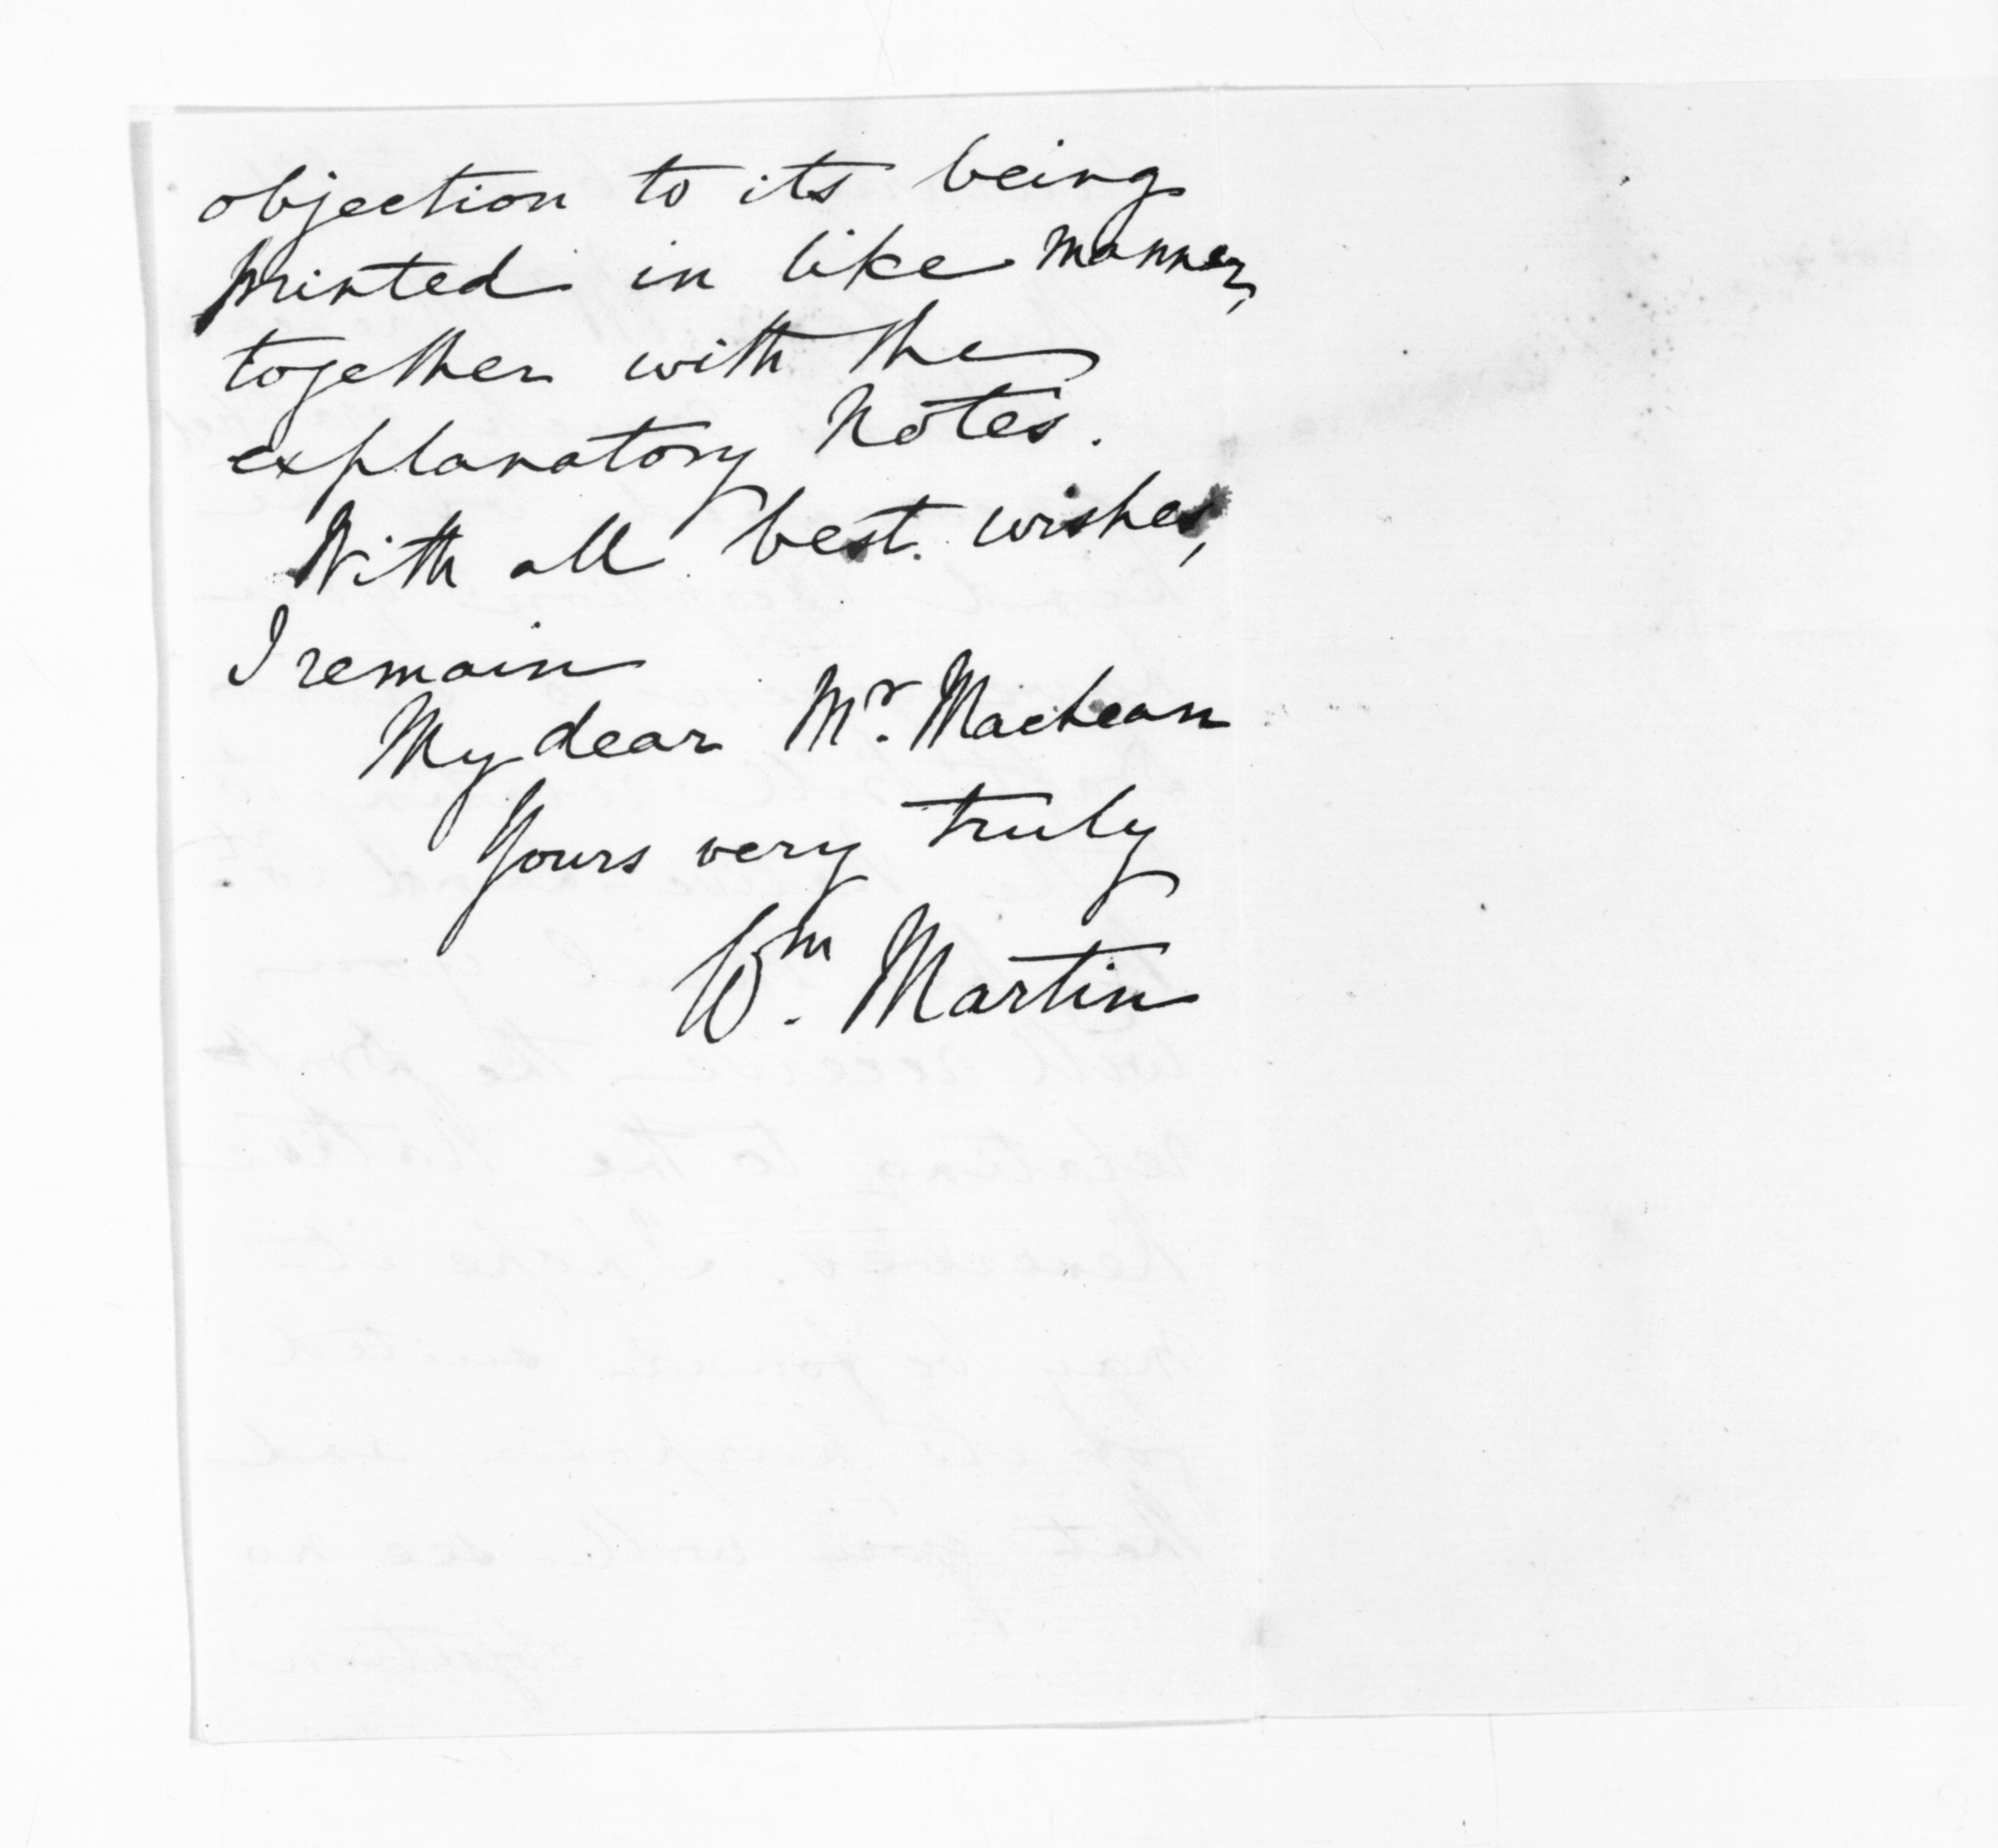 objection to its being
printed in like manner,
together with the
explanatory Notes.
With all best wishes,
I remain
My dear Mr. McLean
Yours very truly
Wm. Martin